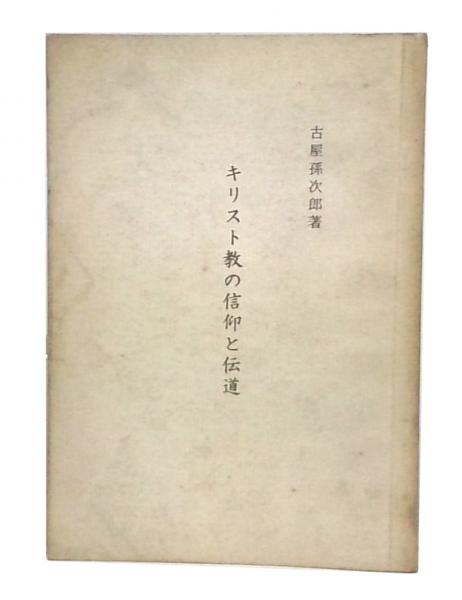 古屋孫次郎著
キリスト教の信仰と伝道